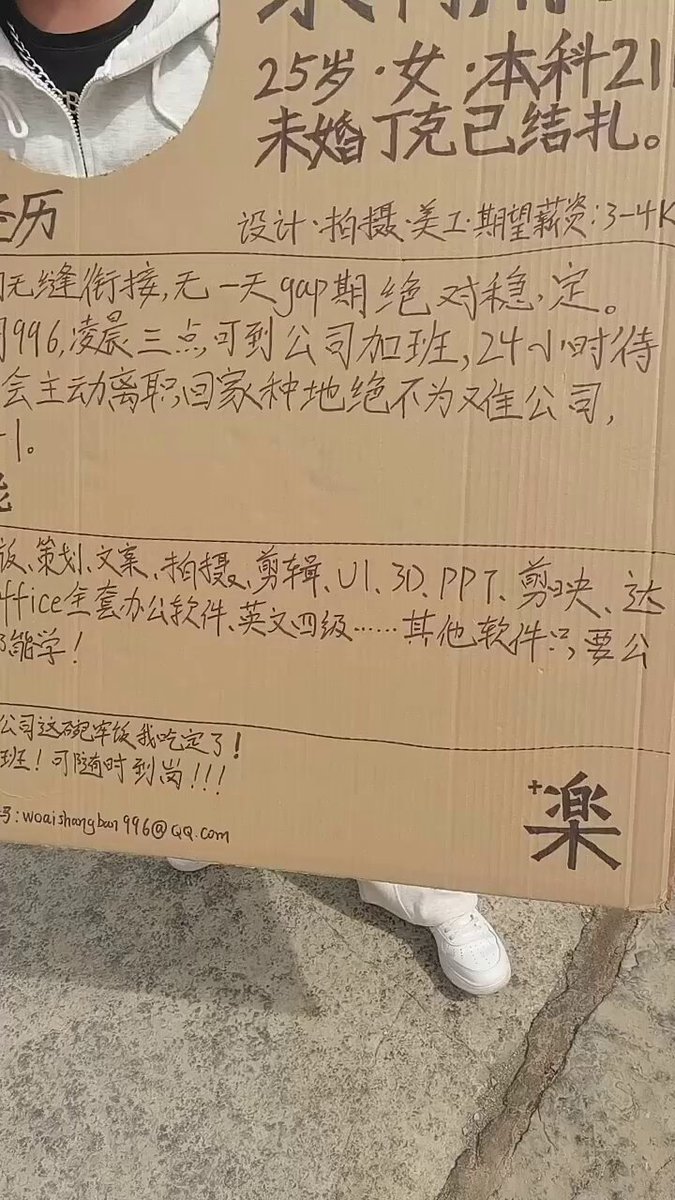 25岁·女·本科21
未婚丁克已结扎。
经历
设计·拍摄·美工·期望薪资:3-4K
无缝衔接,无一天gap期绝对稳定。
996,凌晨三点,可到公司加班,24小时待
会主动离职,回家种地绝不为难公司,
、策划、文案、拍摄、剪辑、UI、3D、PPT、剪映、达
office全套办公软件、英文四级……其他软件只要公
能学!
公司这碗牢饭我吃定了!
班!可随时到岗!!!
号:woaishangban996@QQ.com
+楽